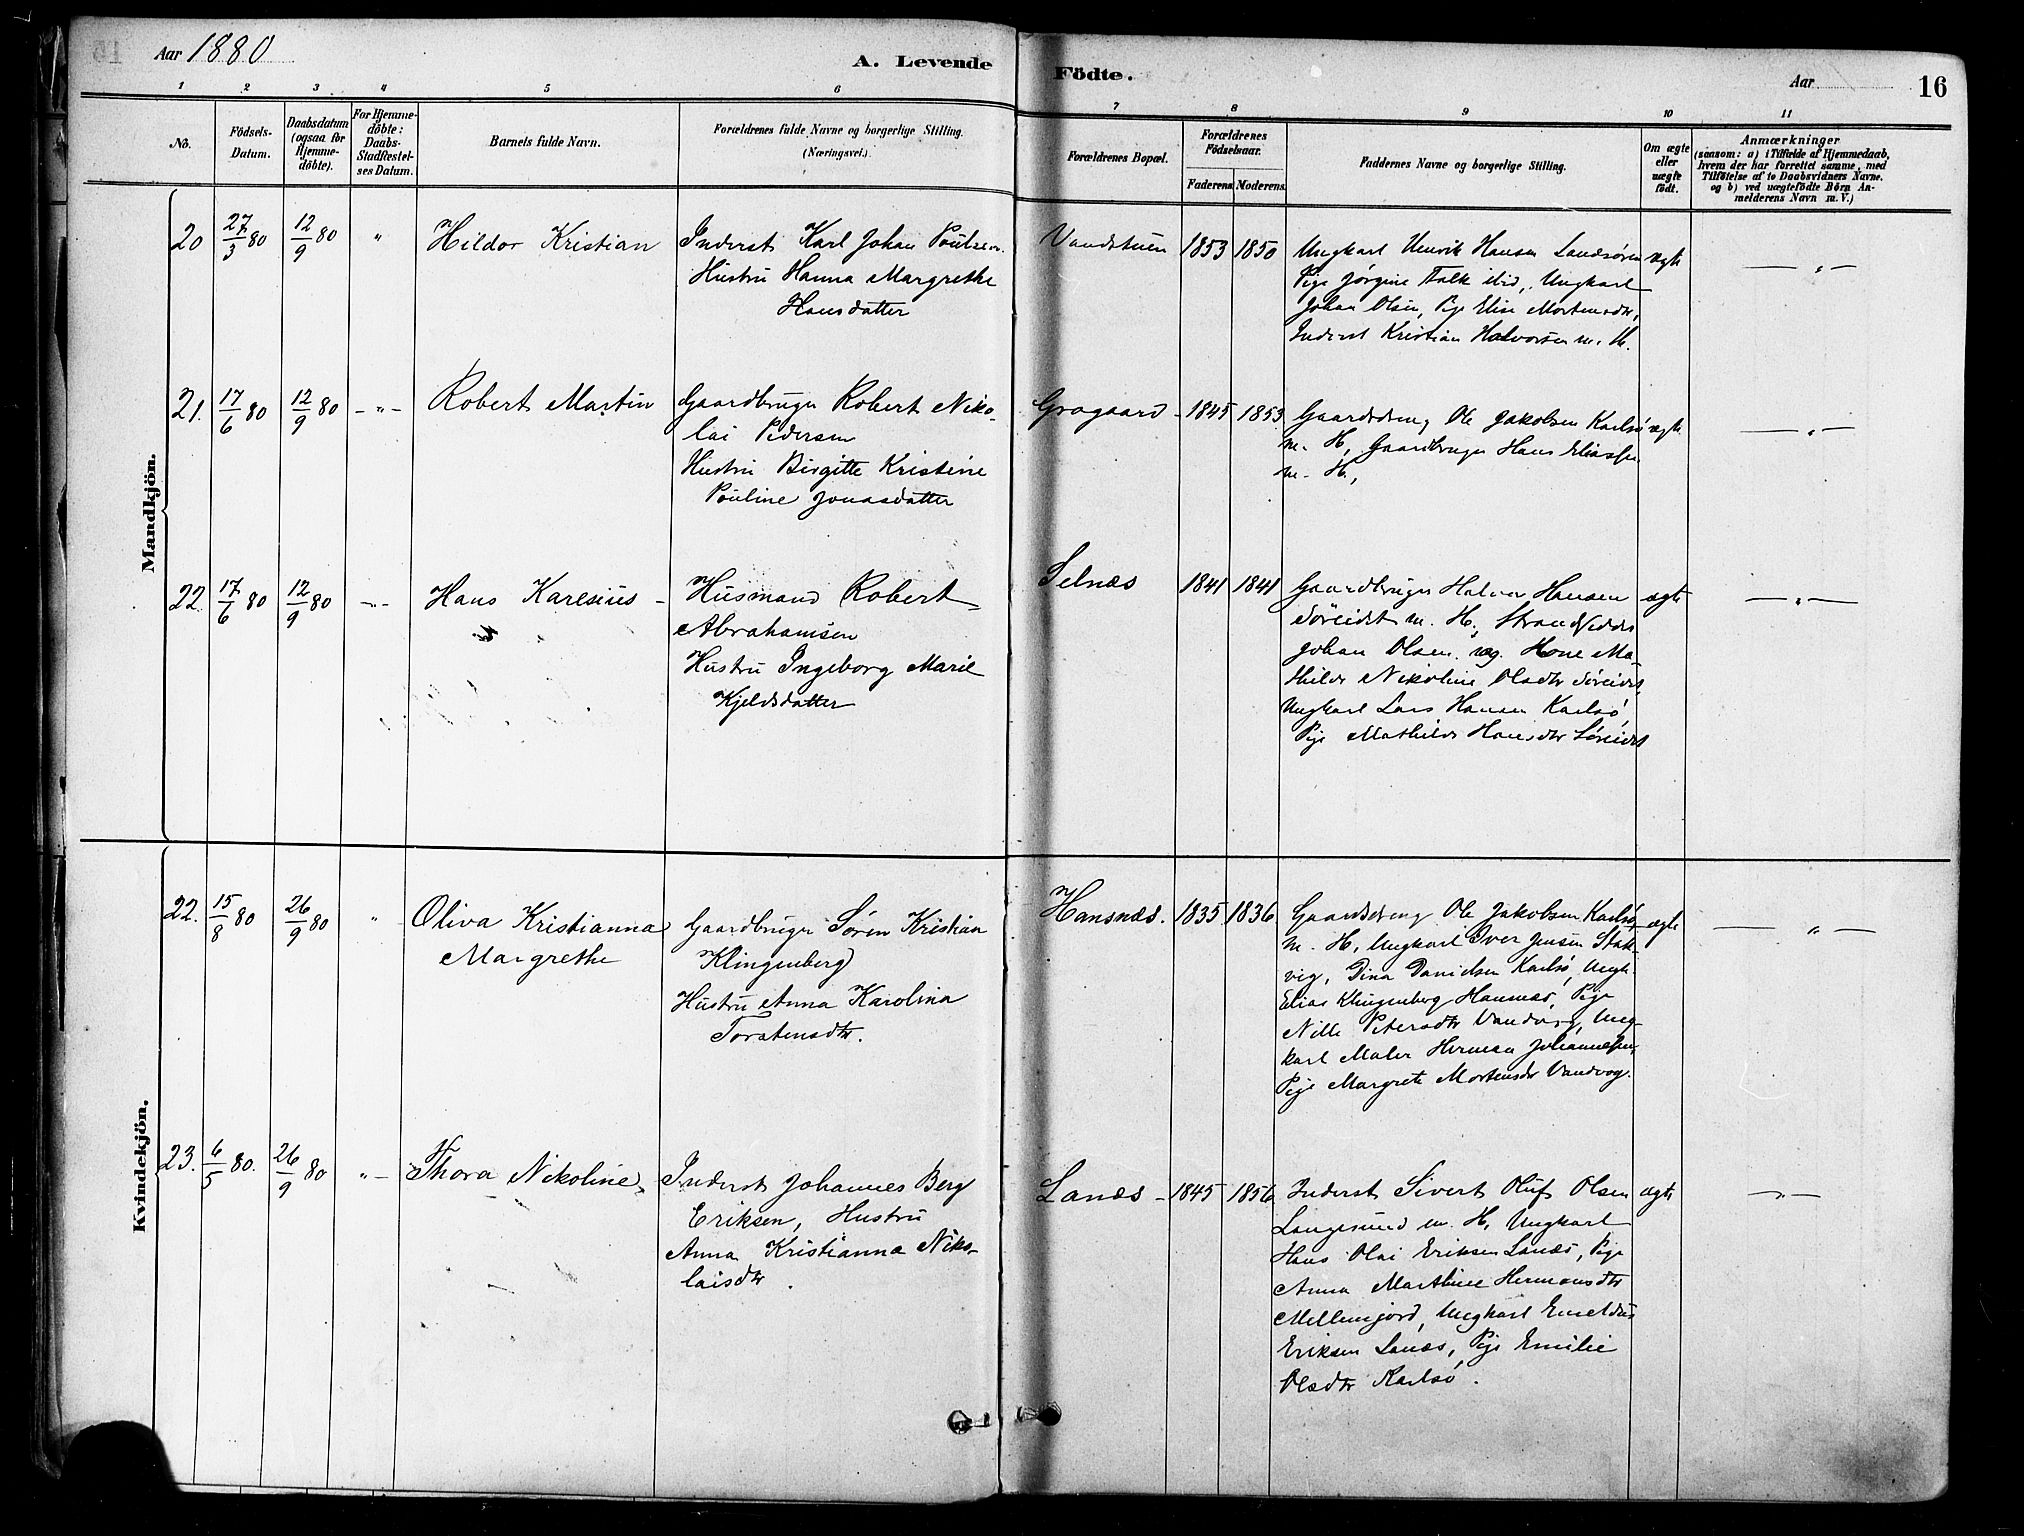 Aar 1880
A. Levende
Födte.
Aar
16
1 2 3 4 5 6
7 8 9 10 11
No.
Födsels-
Datum.
Daabsdatum
(ogsaa for
Hjemme-
döbte).
For Hjemme-
döbte:
Daabs-
Stadfæstel-
ses Datum.
Barnets fulde Navn.
Forældrenes fulde Navne og borgerlige Stilling.
(Næringsvei.)
Forældrenes Bopæl.
Forældrenes
Födselsaar.
Faderens. Moderens.
Faddernes Navne og borgerlige Stilling.
Om ægte
eller
uægte
födt.
Anmærkninger
(saasom: a) i Tilfælde af Hjemmedaab,
hvem der har forrettet samme, med
Tilföielse af to Daabsvidners Navne.
og b) ved uægtefödte Börn An-
melderens Navn m. V.)
Mandkjön.
20 27/3 80 12/9 80 " Hildor Kristian
Inderst Karl Johan Poulsen
Hustru Hanna Margrethe
Hansdatter
Vandstuen 1853 1850
Ungkarl Henrik Hansen Landsören
Pige Jørgine Falk ibid, Ungkarl
Johan Olsen, Pige Elise Mortensdtr,
Inderst Kristian Halvorsen m. H.
ægte
— " —
21. 17/6 80 12/9 80 -"- Robert Martin
Gaardbruger Robert Niko-
lai Pedersen
Hustru Birgitte Kristine
Pouline Jonasdatter
Grogaard 1845 1853
Gaardsdreng Ole Jakobsen Karlsö
m. H, Gaardbruger Hans Eliassen
m. H.,
ægte
— " —
22. 17/6 80 12/9 80 -"- Hans Karesius
Husmand Robert
Abrahamsen
Hustru Ingeborg Marie
Kjeldsdatter
Selnæs 1841 1841
Gaardbruger Halvor Hansen
Söreidet m. H.,
Johan Olsen. Kone Ma-
thilde Nikoline Olsdtr Söreidet,
Ungkarl Lars Hansen Karlsö,
Pige Mathilde Hansdtr Söreidet
ægte
— " —
Kvindekjön.
22. 15/8 80 26/9 80 " Oliva Kristianna
Margrethe
Gaardbruger Sören Kristian
Klingenberg
Hustru Anna Karolina
Torstensdtr.
Hansnæs. 1835 1836
Gaardsdreng Ole Jakobsen Karlsö,
m. H, Ungkarl Iver Jensen Stak-
vig, Dina Danielsen Karlsö, Ungk.
Elias Klingenberg Hansnæs, Pige
Nille Petersdtr Vandvog, Ung-
karl Maler Herman Johannesen,
Pige Margrete Mortensdr Vandvog.
ægte
— " —
23. 6/5 80. 26/9 80 "- Thora Nikoline
Inderst Johannes Berg
Eriksen, Hustru
Anna Kristianna Niko-
laisdtr.
Lanæs - 1845 1856
Inderst Sivert Oluf Olsen
Langesund m. H, Ungkarl
Hans Olai Eriksen Lanæs, Pige
Anna Marthine Hermansdtr
Mellemjord, Ungkarl
Eriksen Lanæs, Pige Emilie
Olsdtr Karlsö.
ægte
— " —